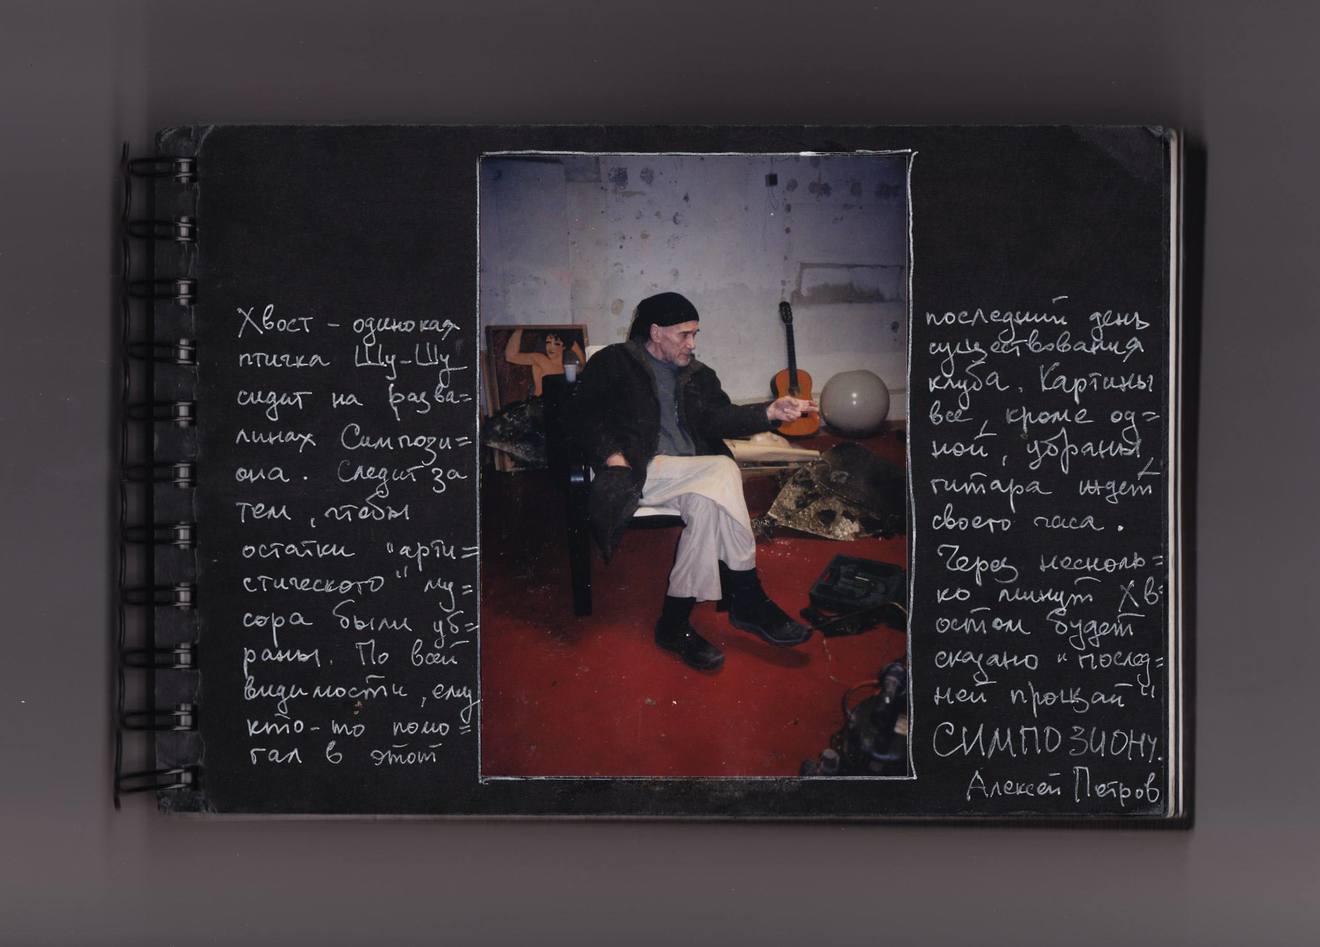 Хвост – одинокая
птичка Шу-Шу
сидит на разва=
линах Симпози=
она. Следит за
тем, чтобы
остатки "арти=
стического" му=
сора были уб=
раны. По всей
видимости, ему
кто-то помо=
гал в этот
последний день
существования
клуба. Картины
все, кроме од=
ной, убраны,
гитара ждёт
своего часа.
Через несколь=
ко минут Хв=
остом будет
сказано "послед=
ней прощай"
СИМПОЗИОНУ.
Алексей Петров